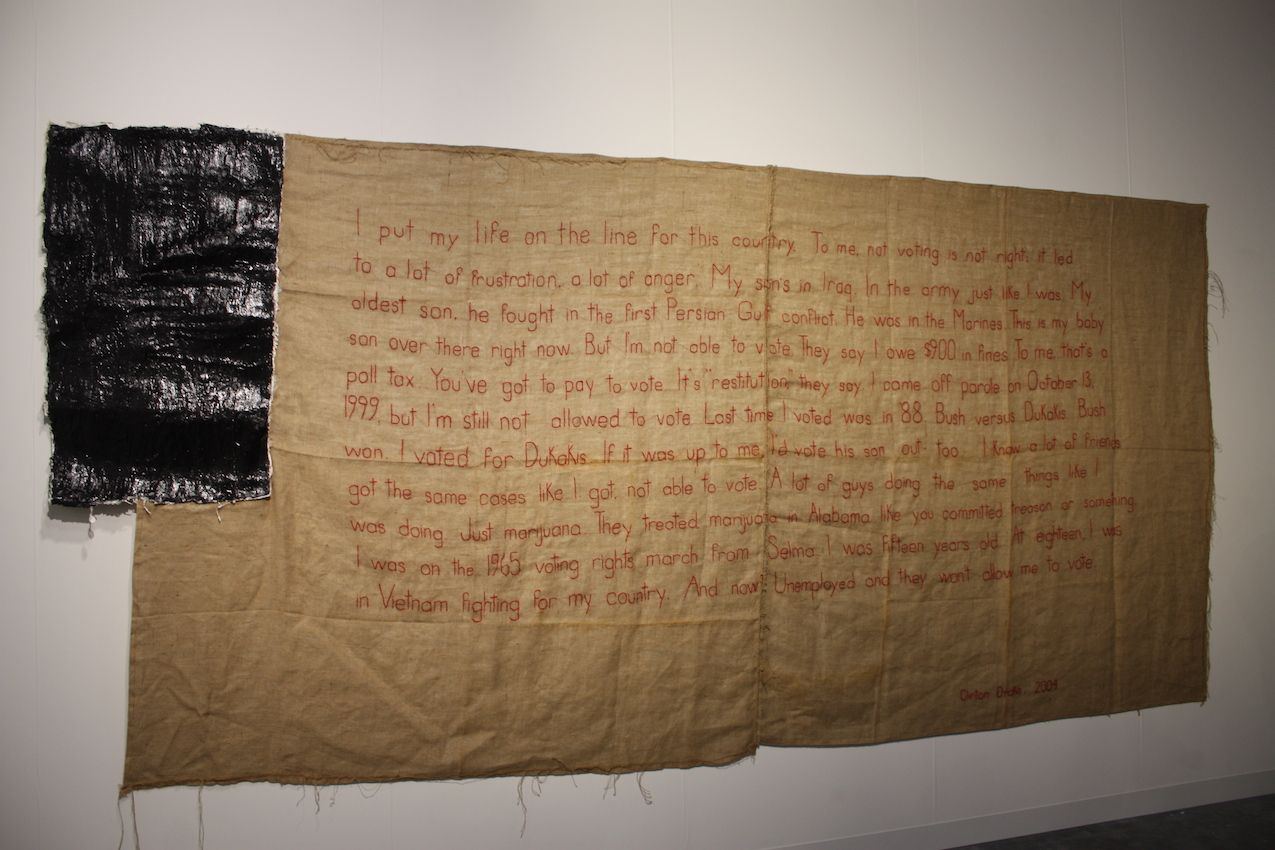 I put my life on the line for this country. To me, not voting is not right; it led
to a lot of frustration, a lot of anger. My son's in Iraq. In the army just like I was. My
oldest son, he fought in the first Persian Gulf conflict. He was in the Marines. This is my baby
son over there right now. But I'm not able to vote. They say I owe $900 in fines. To me, that's a
poll tax. You've got to pay to vote. It's "restitution," they say. I came off parole on October 13,
1999, but I'm still not allowed to vote. Last time I voted was in '88. Bush versus Dukakis. Bush
won. I voted for Dukakis. If it was up to me, I'd vote his son out too. I know a lot of friends
got the same cases like I got, not able to vote. A lot of guys doing the same things like I
was doing. Just marijuana. They treated marijuana in Alabama like you committed treason or something.
I was on the 1965 voting rights march from Selma. I was fifteen years old. At eighteen, I was
in Vietnam fighting for my country. And now? Unemployed and they won't allow me to vote.
Clinton Drake, 2004